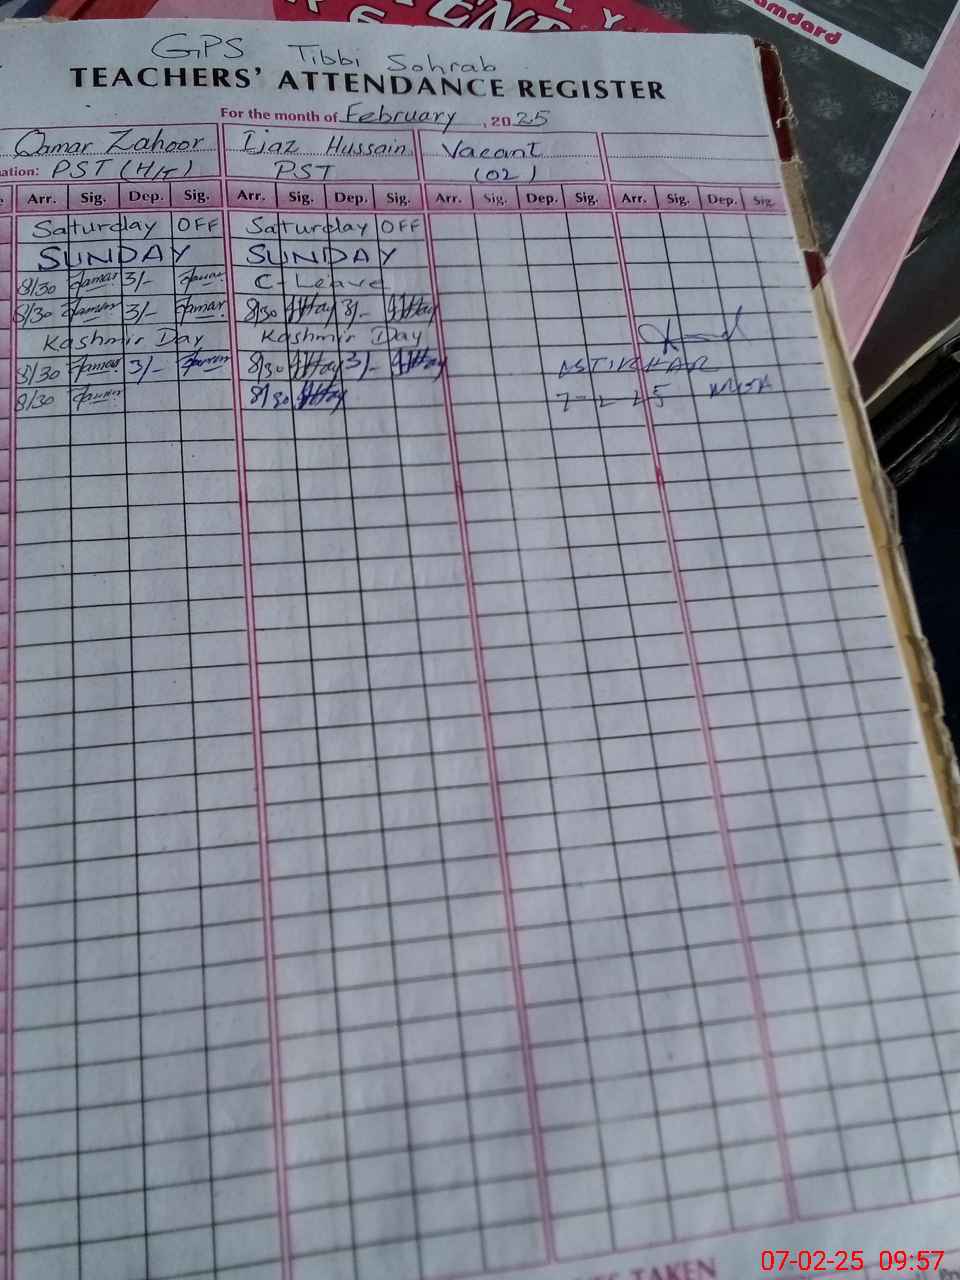 amdard
GPS Tibbi Sohrab
TEACHERS' ATTENDANCE REGISTER
For the month of February, 2025
Qamar Zahoor Ijaz Hussain Vacant
ation: PST (H/T) PST (02)
Arr. Sig. Dep. Sig. Arr. Sig. Dep. Sig. Arr. Sig. Dep. Sig. Arr. Sig. Dep. Sig.
Saturday OFF Saturday OFF
SUNDAY SUNDAY
8/30 3/- C-Leave
8/30 3/- 8/30 3/-
Kashmir Day Kashmir Day
8/30 3/- 8/30 3/-
8/30 8/30 7-2-25
TAKEN
07-02-25 09:57